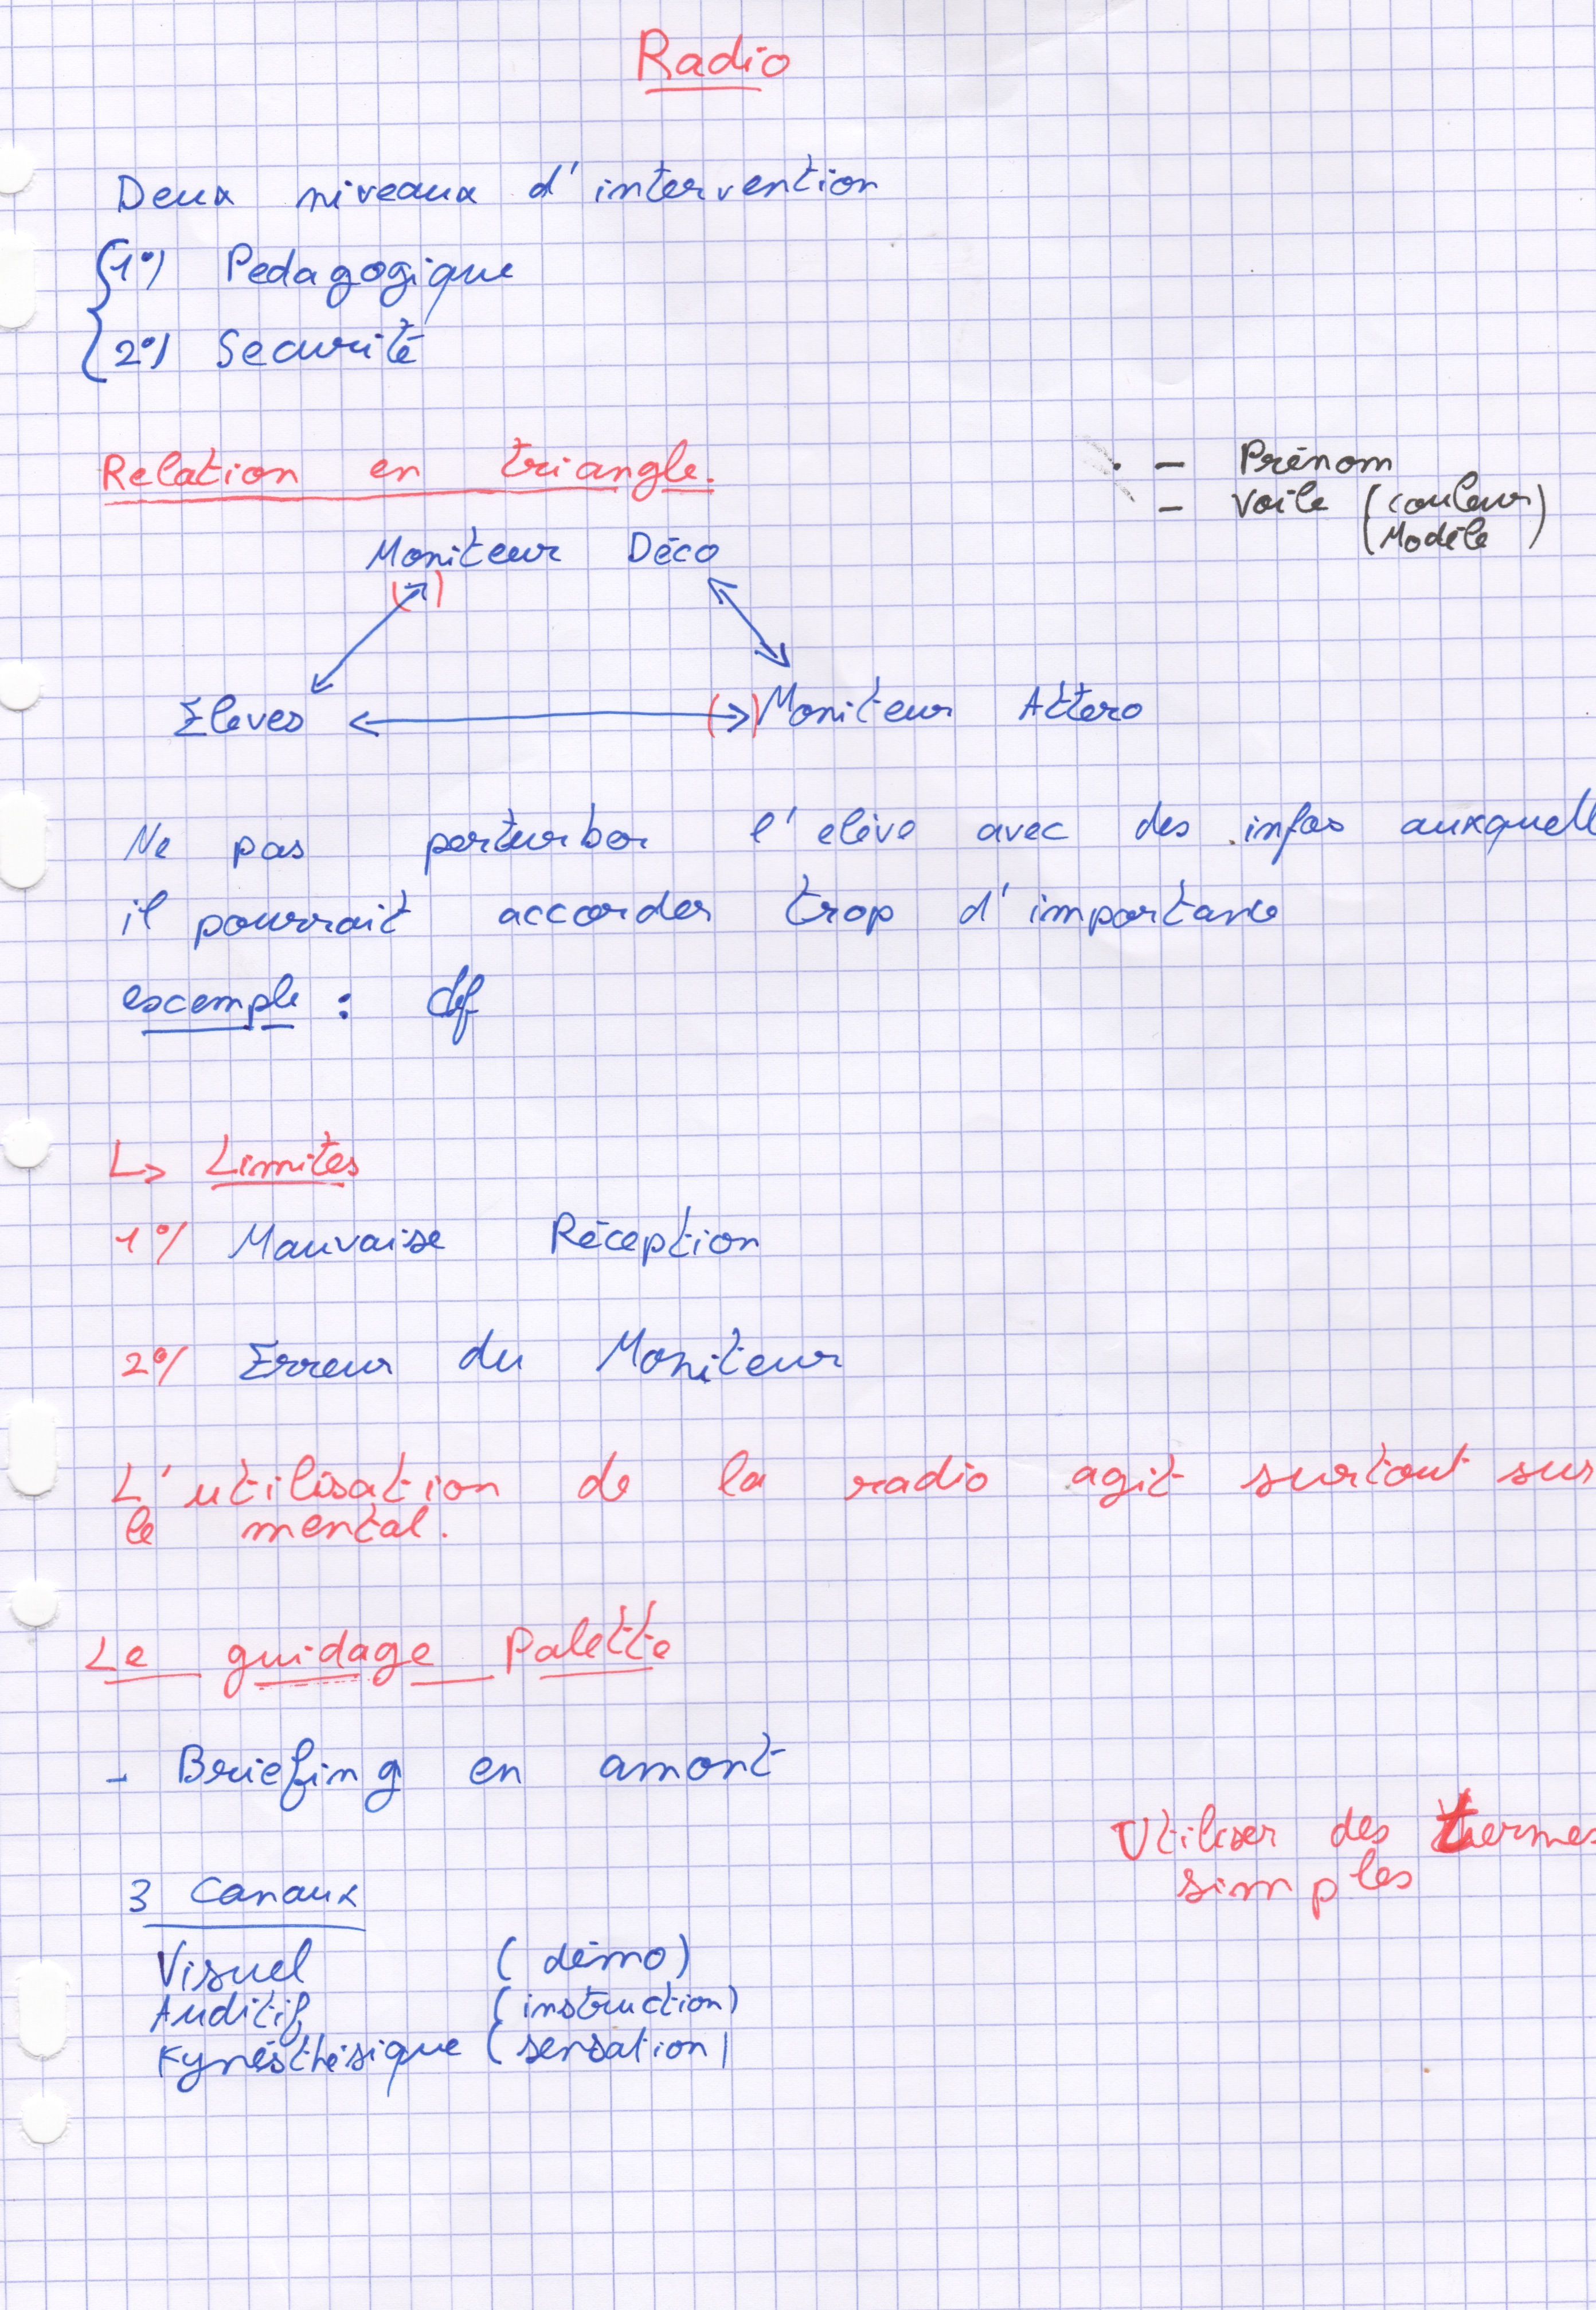 Radio
Deux niveaux d'intervention
1°) Pedagogique
2°) Securité
Relation en triangle.
- Prénom
- Voile (couleur)
(Modèle)
Moniteur Déco
( )
Eleves ( ) Moniteur Attero
Ne pas perturber l'elève avec des infos auxquell
il pourrait accorder trop d'importance
escemple :
↳ Limites
1°/ Mauvaise Réception
2°/ Erreur du Moniteur
L'utilisation de la radio agit surtout sur
le mental.
Le guidage Palette
- Briefing en amont
Utiliser des termes
simples
3 Canaux
Visuel (démo)
Auditif (instruction)
Kynésthésique (sensation)